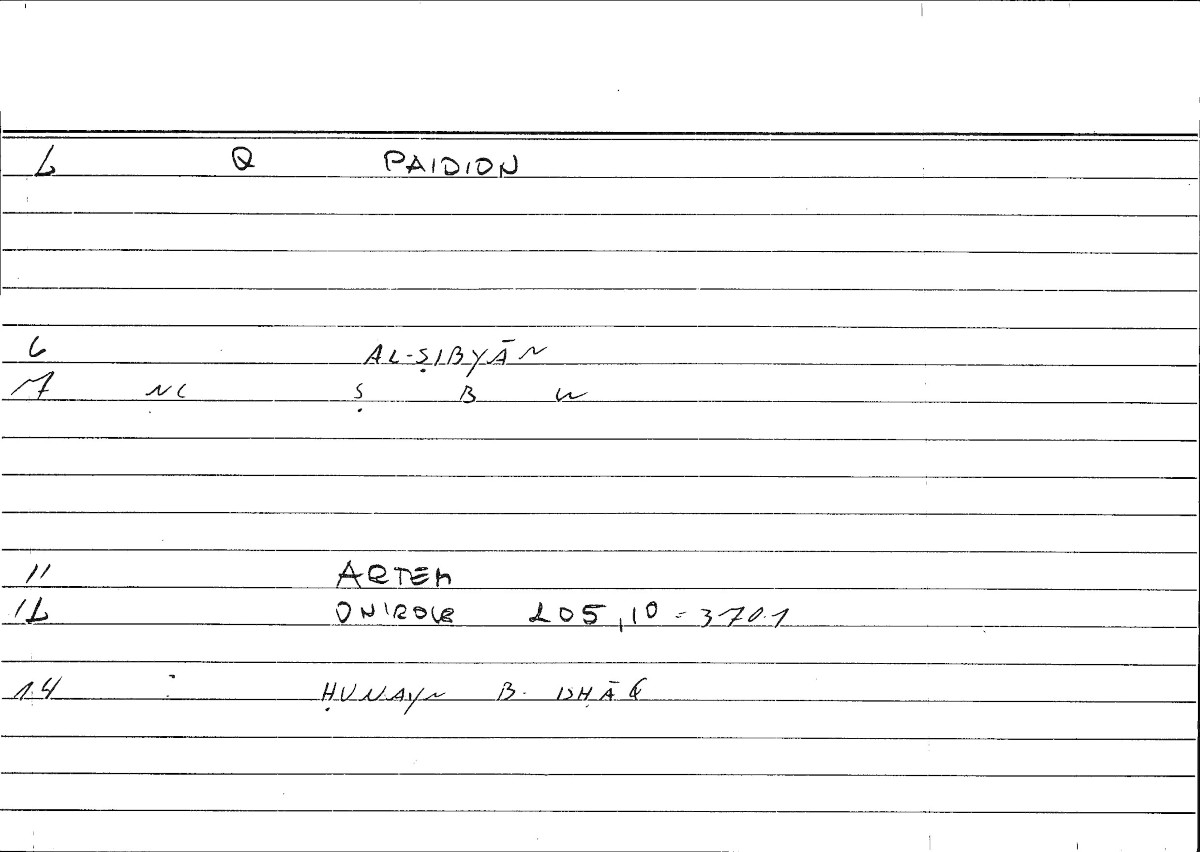 2 Q PAIDION
6 AL-ṢIBYĀN
7 NC Ṣ B W
11 ARTEM
12 ONIROCR 205,10 = 370.1
14 : ḤUNAYN B. ISḤĀQ